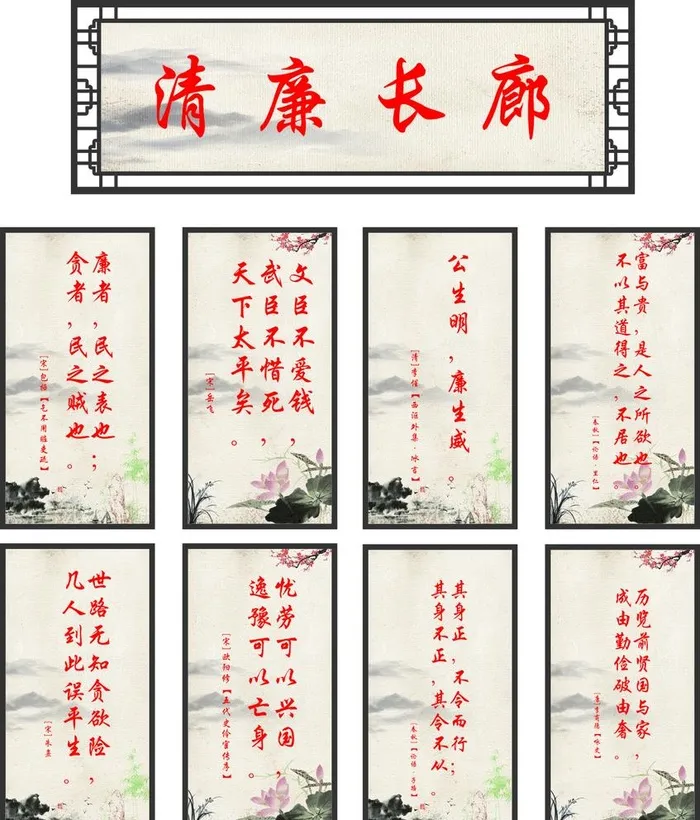 清廉长廊
廉者，民之表也；
贪者，民之贼也。
[宋]包拯【乞不用赃吏疏】
文臣不爱钱，
武臣不惜死，
天下太平矣。
[宋]岳飞
公生明，廉生威。
[清]李惺【西沤外集·冰言】
富与贵，是人之所欲也。
不以其道得之，不居也。
[春秋]【论语·里仁】
世路无知贪欲险，
几人到此误平生。
[宋]朱熹
忧劳可以兴国，
逸豫可以亡身。
[宋]欧阳修【五代史伶官传序】
其身正，不令而行；
其身不正，其令不从。
[春秋]【论语·子路】
历览前贤国与家，
成由勤俭破由奢。
[唐]李商隐【咏史】